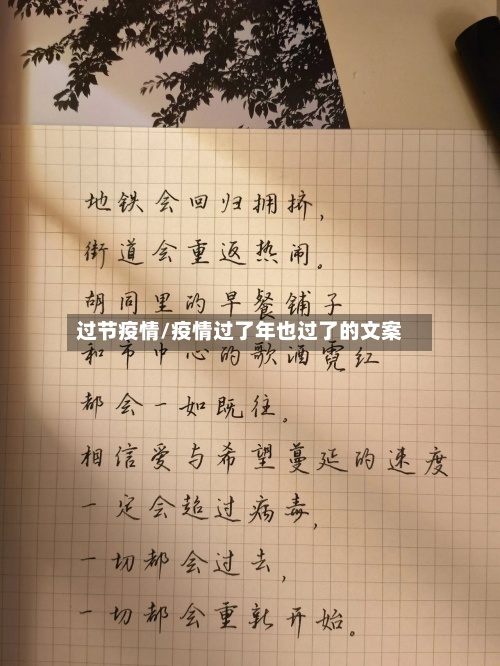 地铁会回归拥挤，
街道会重返热闹。
胡同里的早餐铺子
过节疫情/疫情过了年也过了的文案
和市中心的歌酒霓红
都会一如既往。
相信爱与希望蔓延的速度
一定会超过病毒，
一切都会过去，
一切都会重新开始。